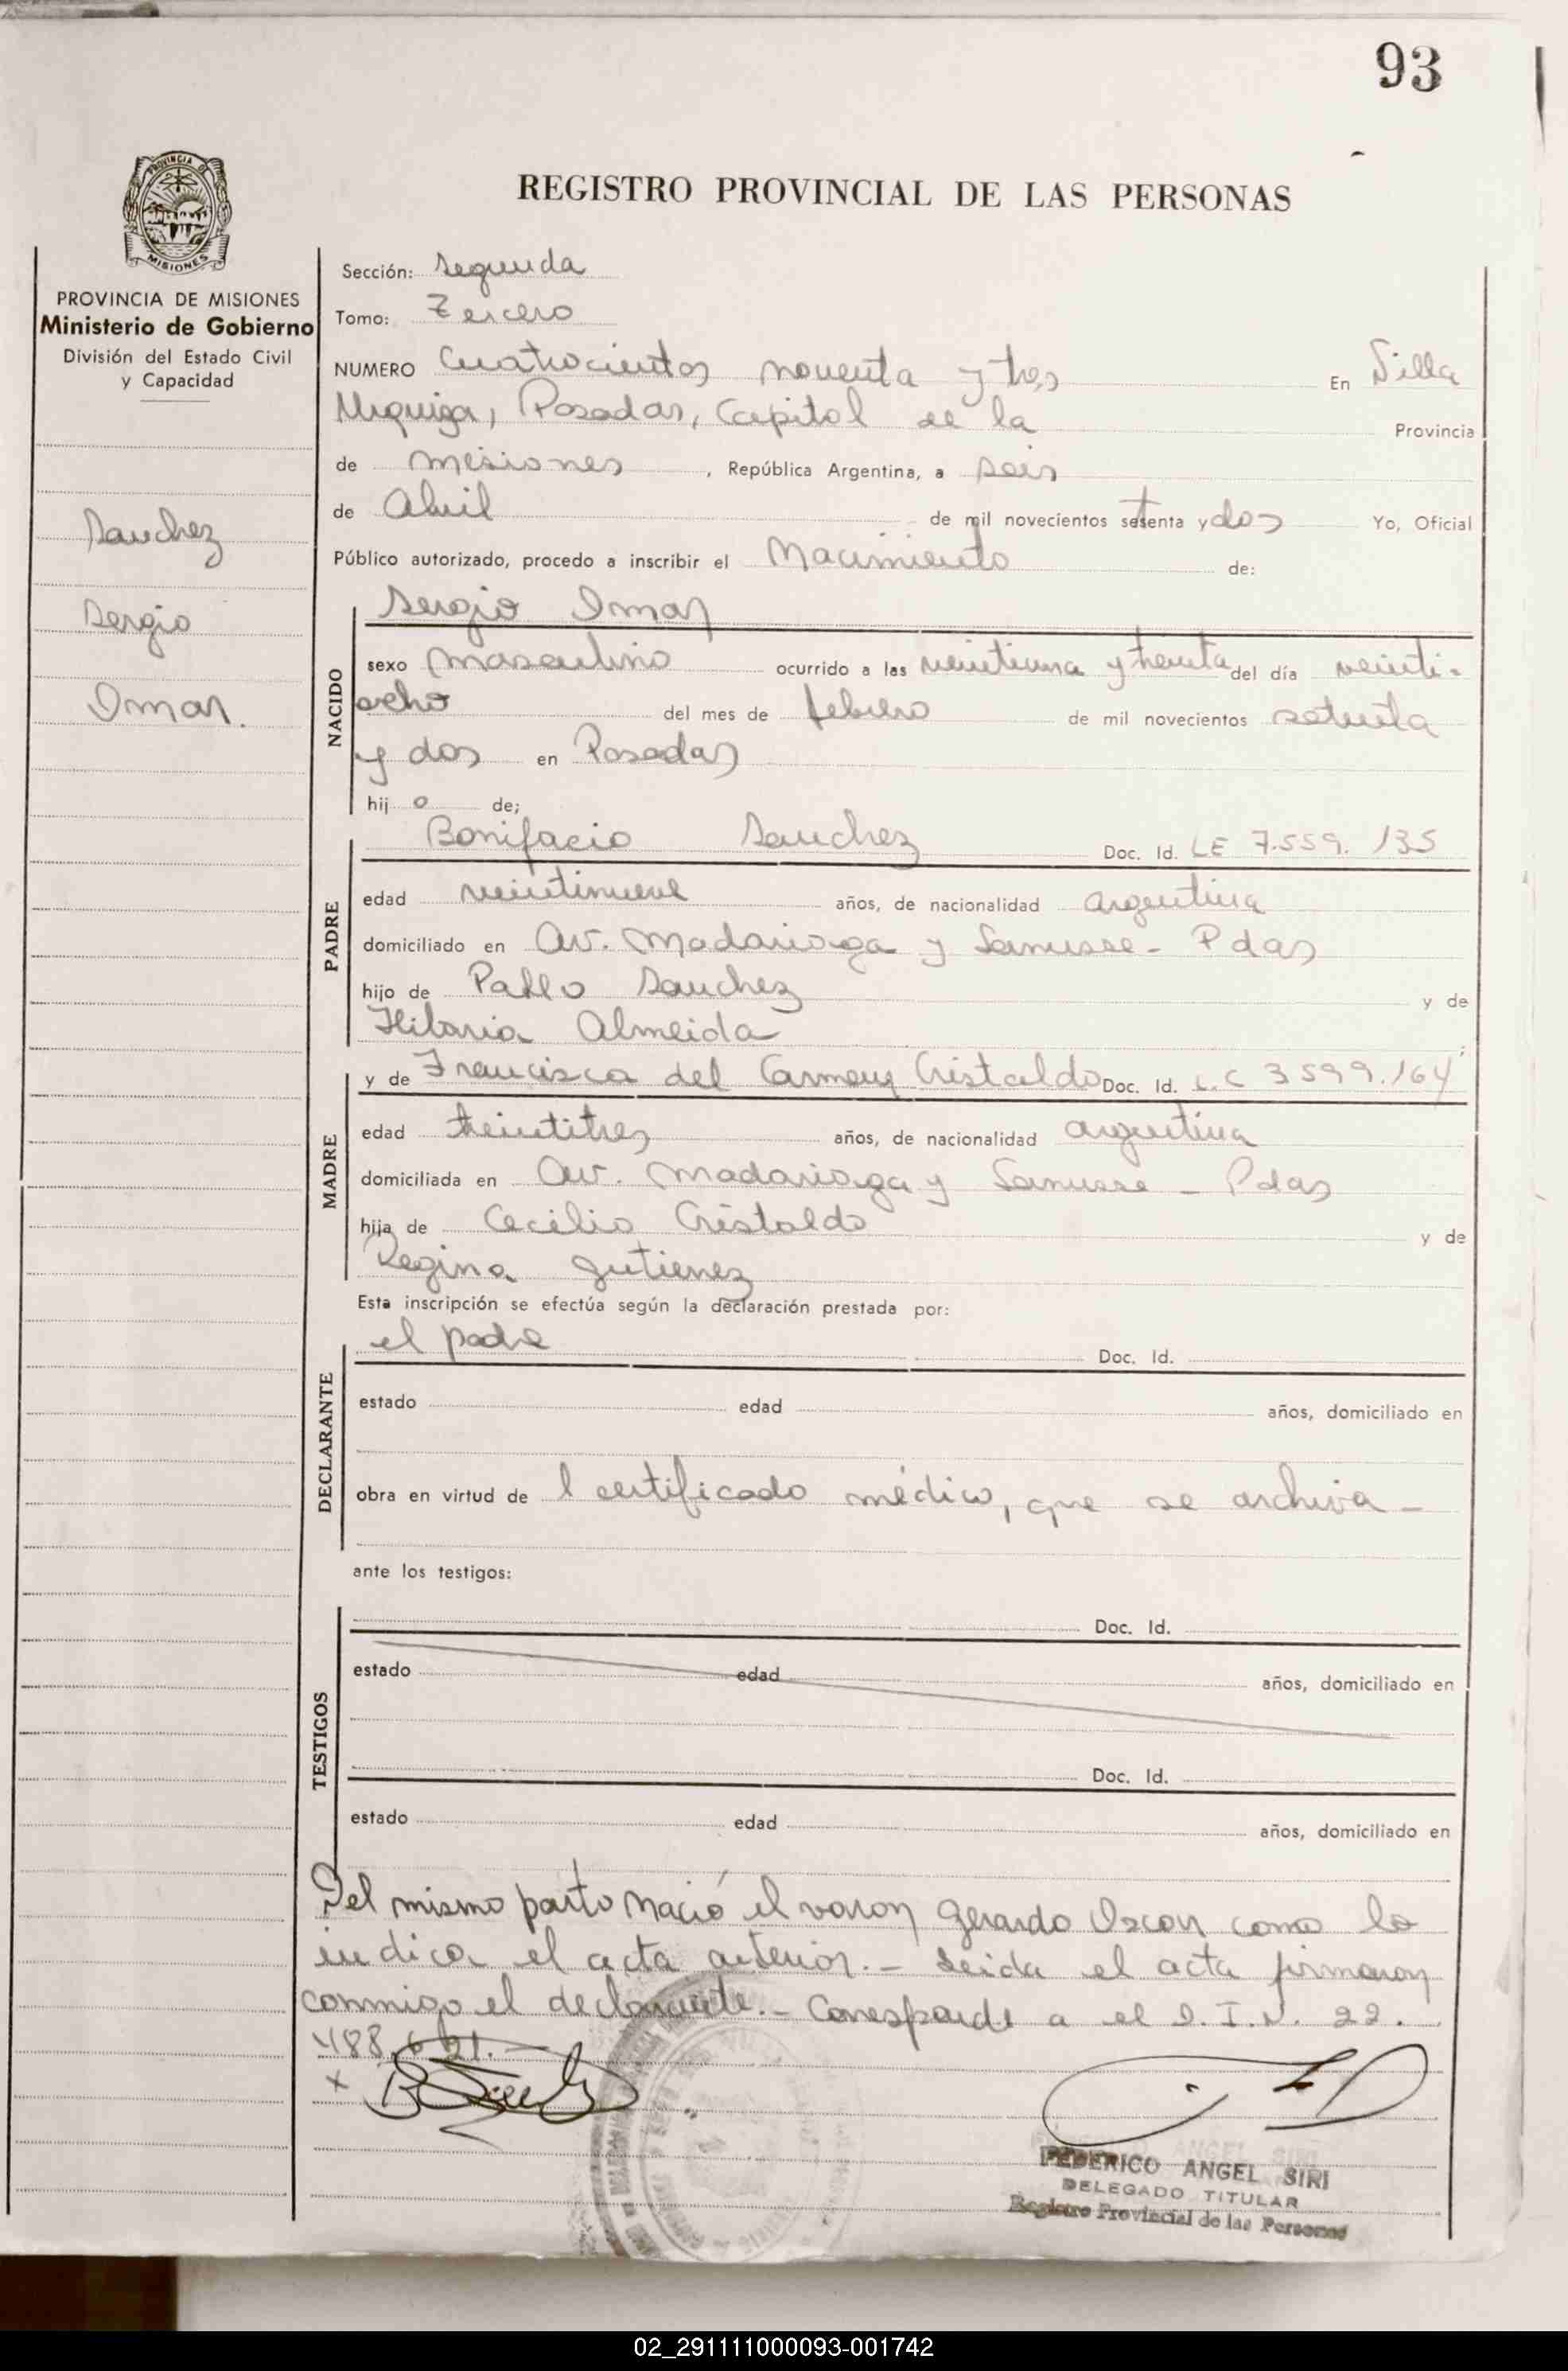 93
PROVINCIA DE
MISIONES
REGISTRO PROVINCIAL DE LAS PERSONAS
PROVINCIA DE MISIONES
Ministerio de Gobierno
División del Estado Civil
y Capacidad
Sanchez
Sergio
Omar.
Sección: Segunda
Tomo: Tercero
NUMERO Cuatrocientos noventa y tres En Villa
Urquiza, Posadas, Capital de la Provincia
de Misiones, República Argentina, a seis
de Abril de mil novecientos setenta y dos Yo, Oficial
Público autorizado, procedo a inscribir el Nacimiento de:
NACIDO
Sergio Omar
sexo masculino ocurrido a las veintiuna y treinta del día veinti-
ocho del mes de febrero de mil novecientos setenta
y dos en Posadas
hij o de;
PADRE
Bonifacio Sanchez Doc. Id. LE 7.559.135
edad veintinueve años, de nacionalidad argentina
domiciliado en Av. Madariaga y Lanusse - Pdas
hijo de Pablo Sanchez y de
Hilaria Almeida
MADRE
y de Francisca del Carmen Cristaldo Doc. Id. L.C 3599.164
edad treintitres años, de nacionalidad argentina
domiciliada en Av. Madariaga y Lanusse - Pdas
hija de Cecilio Cristaldo y de
Regina Gutierrez
Esta inscripción se efectúa según la declaración prestada por:
DECLARANTE
el padre Doc. Id.
estado edad años, domiciliado en
obra en virtud de l certificado médico, que se archiva-
ante los testigos:
TESTIGOS
Doc. Id.
estado edad años, domiciliado en
Doc. Id.
estado edad años, domiciliado en
Del mismo parto nació el varon Gerardo Oscar como lo
indica el acta anterior.- Leida el acta firmaron
conmigo el declarante.- Corresponde a el D.I.N. 22.
488.621.-
FEDERICO ANGEL SIRI
DELEGADO TITULAR
Registro Provincial de las Personas
02_291111000093-001742